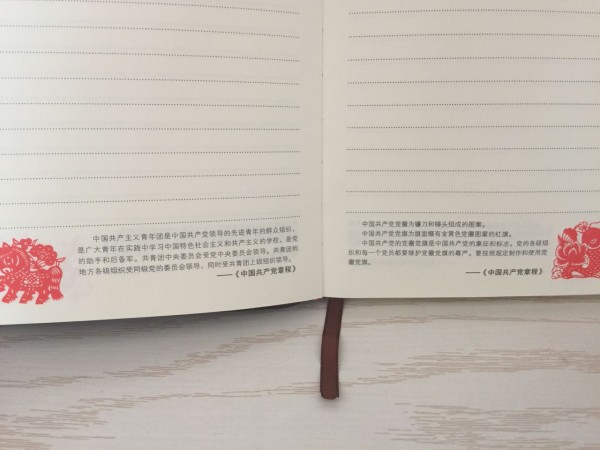 中国共产主义青年团是中国共产党领导的先进青年的群众组织,
是广大青年在实践中学习中国特色社会主义和共产主义的学校，是党
的助手和后备军。共青团中央委员会受党中央委员会领导。共青团的
地方各级组织受同级党的委员会领导，同时受共青团上级组织领导。
——《中国共产党章程》
中国共产党党徽为镰刀和锤头组成的图案。
中国共产党党旗为旗面缀有金黄色党徽图案的红旗。
中国共产党的党徽党旗是中国共产党的象征和标志。党的各级组
织和每一个党员都要维护党徽党旗的尊严。要按照规定制作和使用党
徽党旗。
——《中国共产党章程》